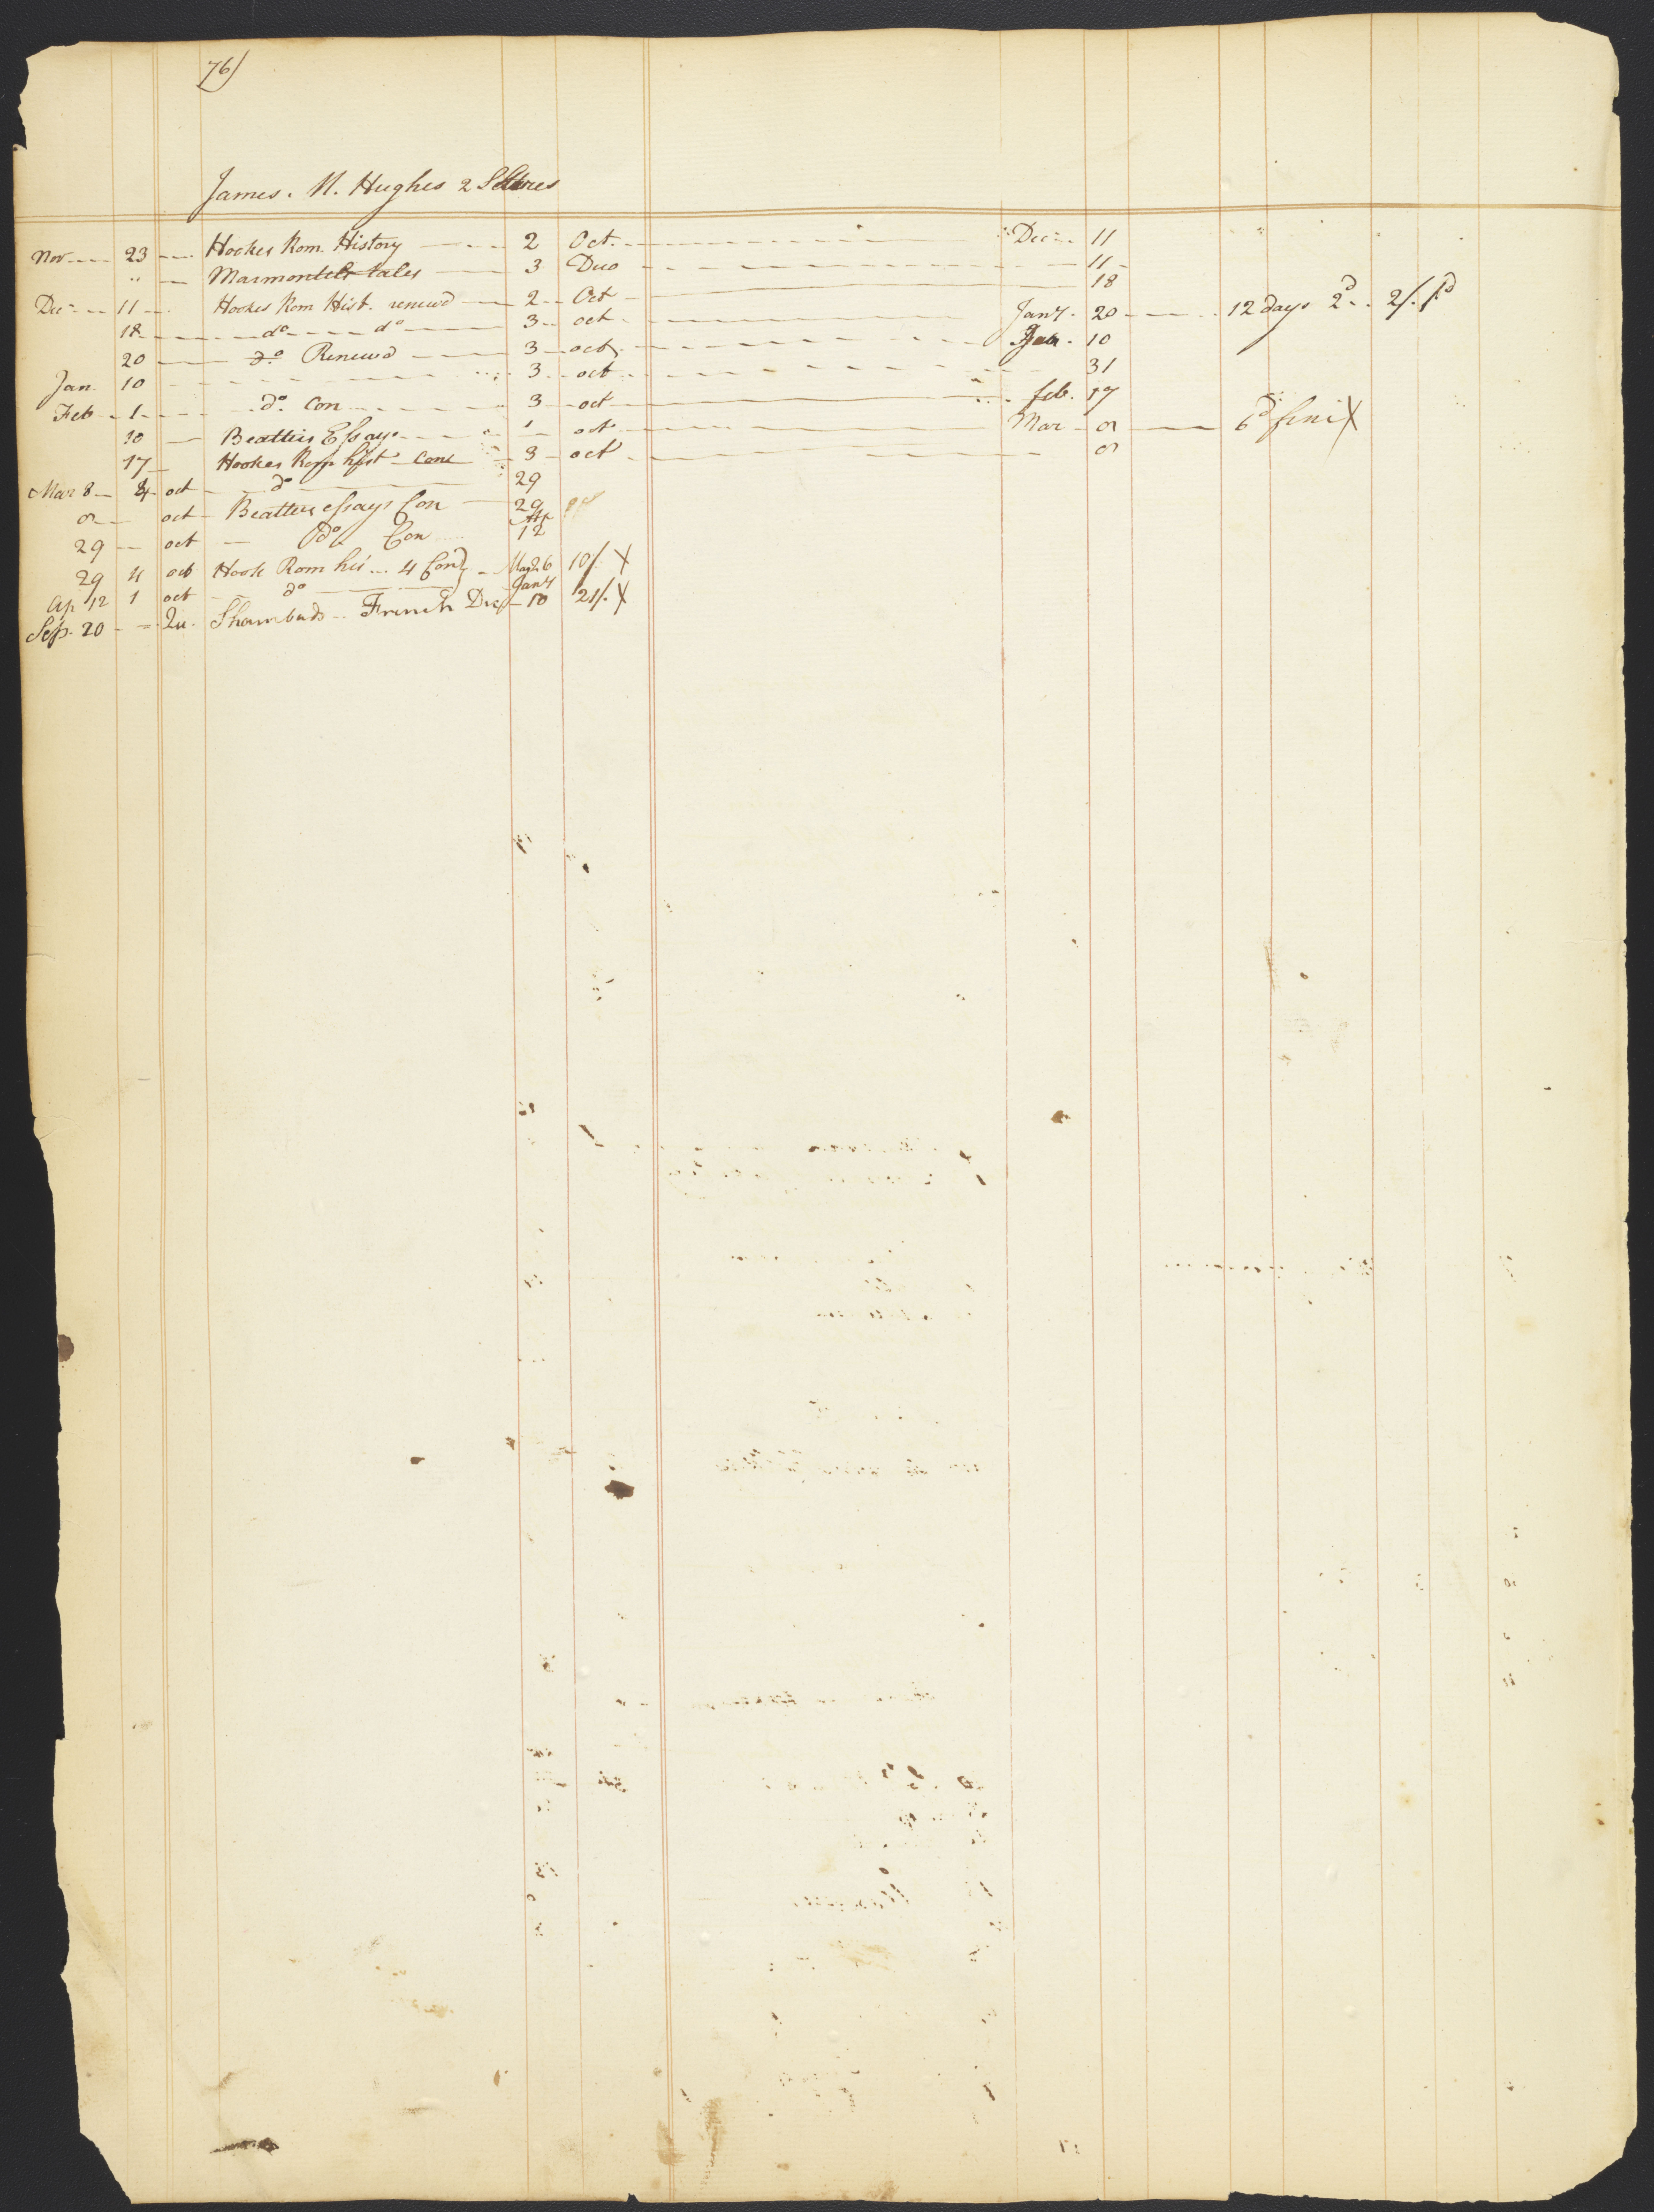 76)
James. N. Hughes 2 Shares
Nov 23 Hookes Rom. History 2 Oct. Dec 11
" Marmontels tales 3 Duo 11
Dec 11 Hookes Rom Hist. renewd 2 Oct 18
18 do do 3 oct Jany. 20 12 days 2d 2/. pd
20 do Renewd 3 oct Jan. 10
Jan 10 3 oct 31
Feb 1 do. Con 3 oct feb. 17
10 Beatties Essays 1 oct Mar 8 6d fine X
17 Hookes Rom hist Con 3 oct 8
Mar 8 4 oct do 29
8 oct Beatties essays Con 29
29 oct do Con Ap 12
29 4 oct Hook Rom his 4 Cond May 26 10/. X
Ap 12 1 oct do Jany
Sep. 20 Qu. Shambuds French Dicy 10 21/. X